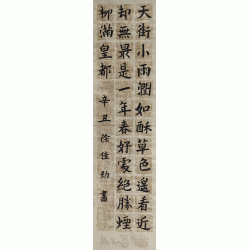 天街小雨潤如酥草色遙看近
却無最是一年春好處絕勝煙
柳滿皇都 辛丑 徐佳勁書